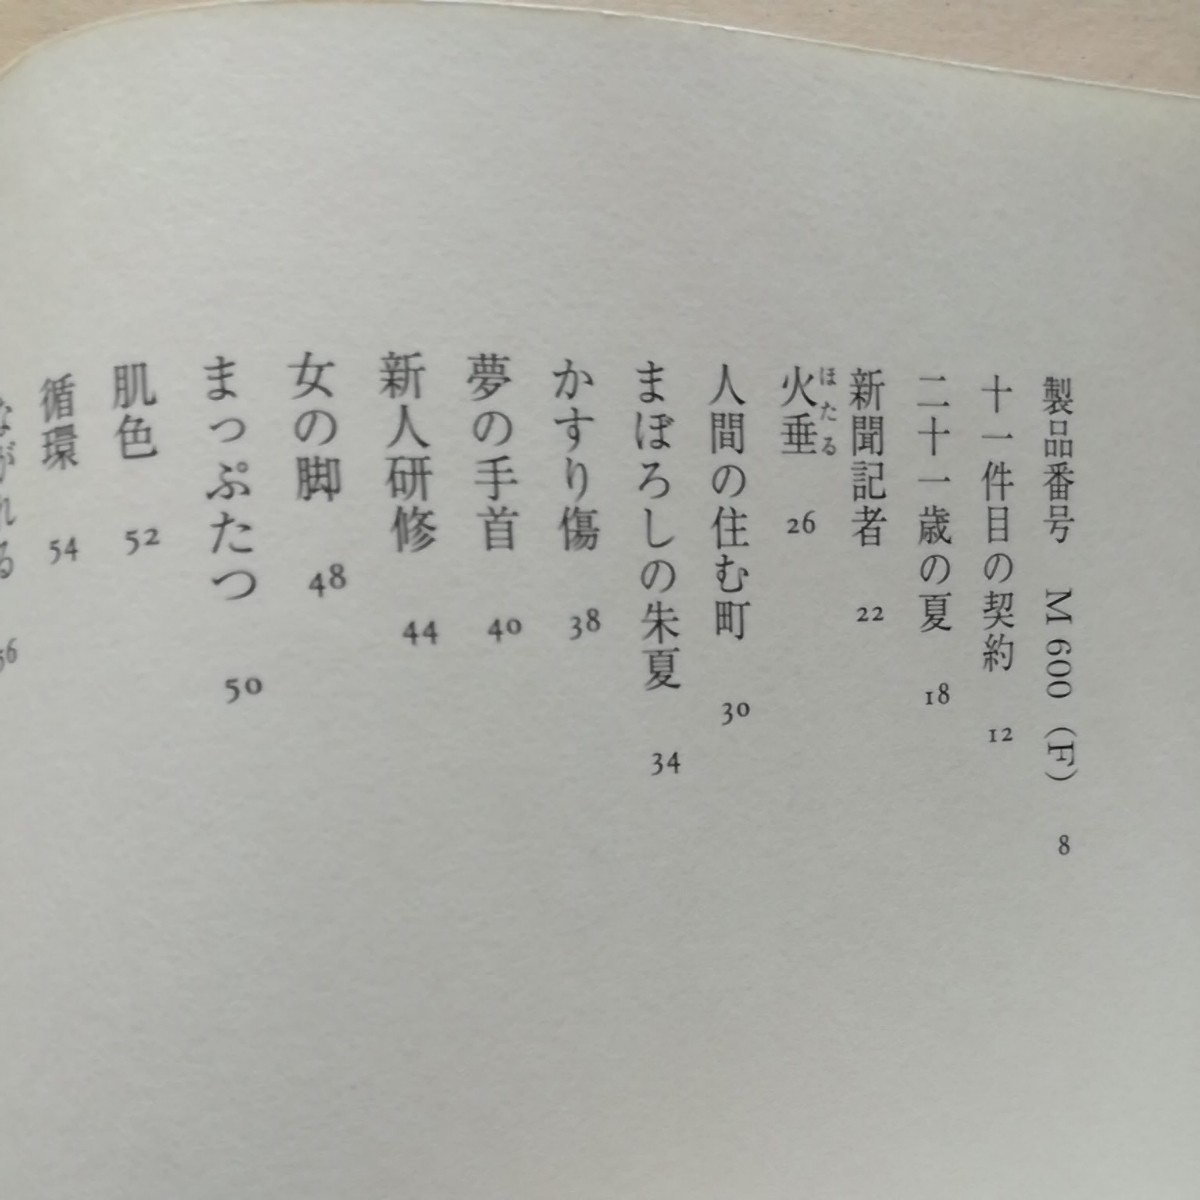 製品番号 M600(F) 8
十一件目の契約 12
二十一歳の夏 18
新聞記者 22
ほたる
火垂 26
人間の住む町 30
まぼろしの朱夏 34
かすり傷 38
夢の手首 40
新人研修 44
女の脚 48
まっぷたつ 50
肌色 52
循環 54
ながれる 56